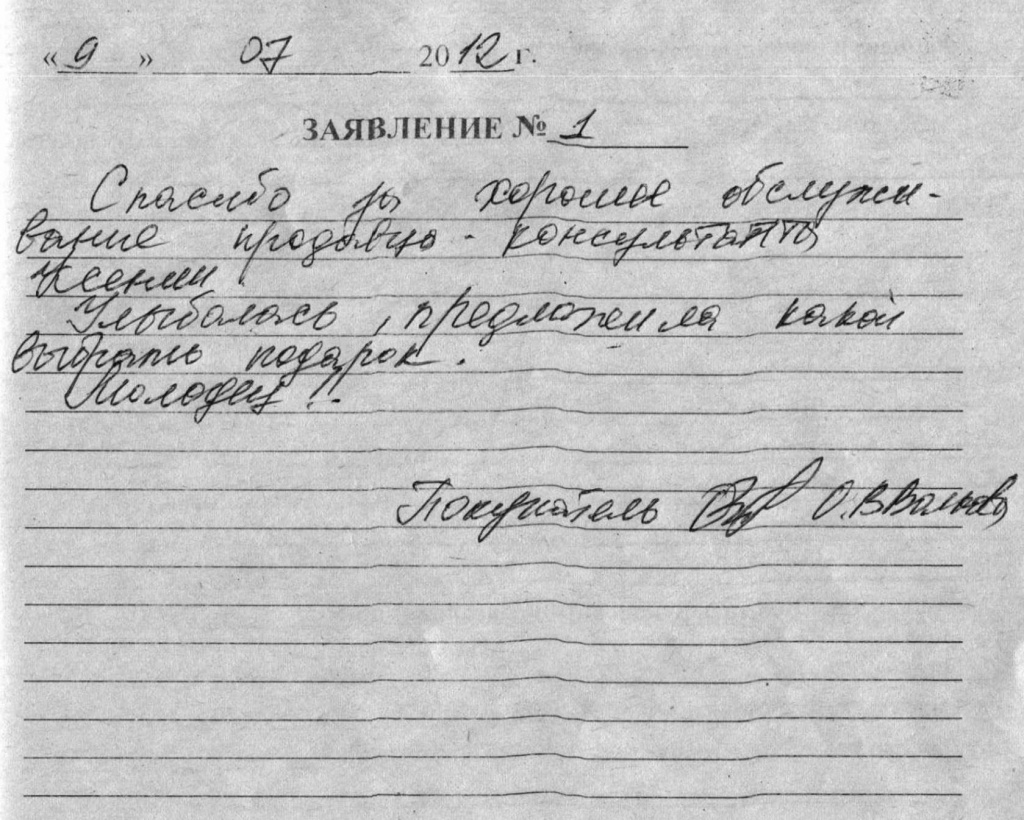 « 9 » 07 2012 г.
ЗАЯВЛЕНИЕ № 1
Спасибо за хорошее обслужи-
вание продавца - консультанта
Ксении
Улыбалась, предложила какой
выбрать подарок.
Молодец !.
Покупатель О.В.